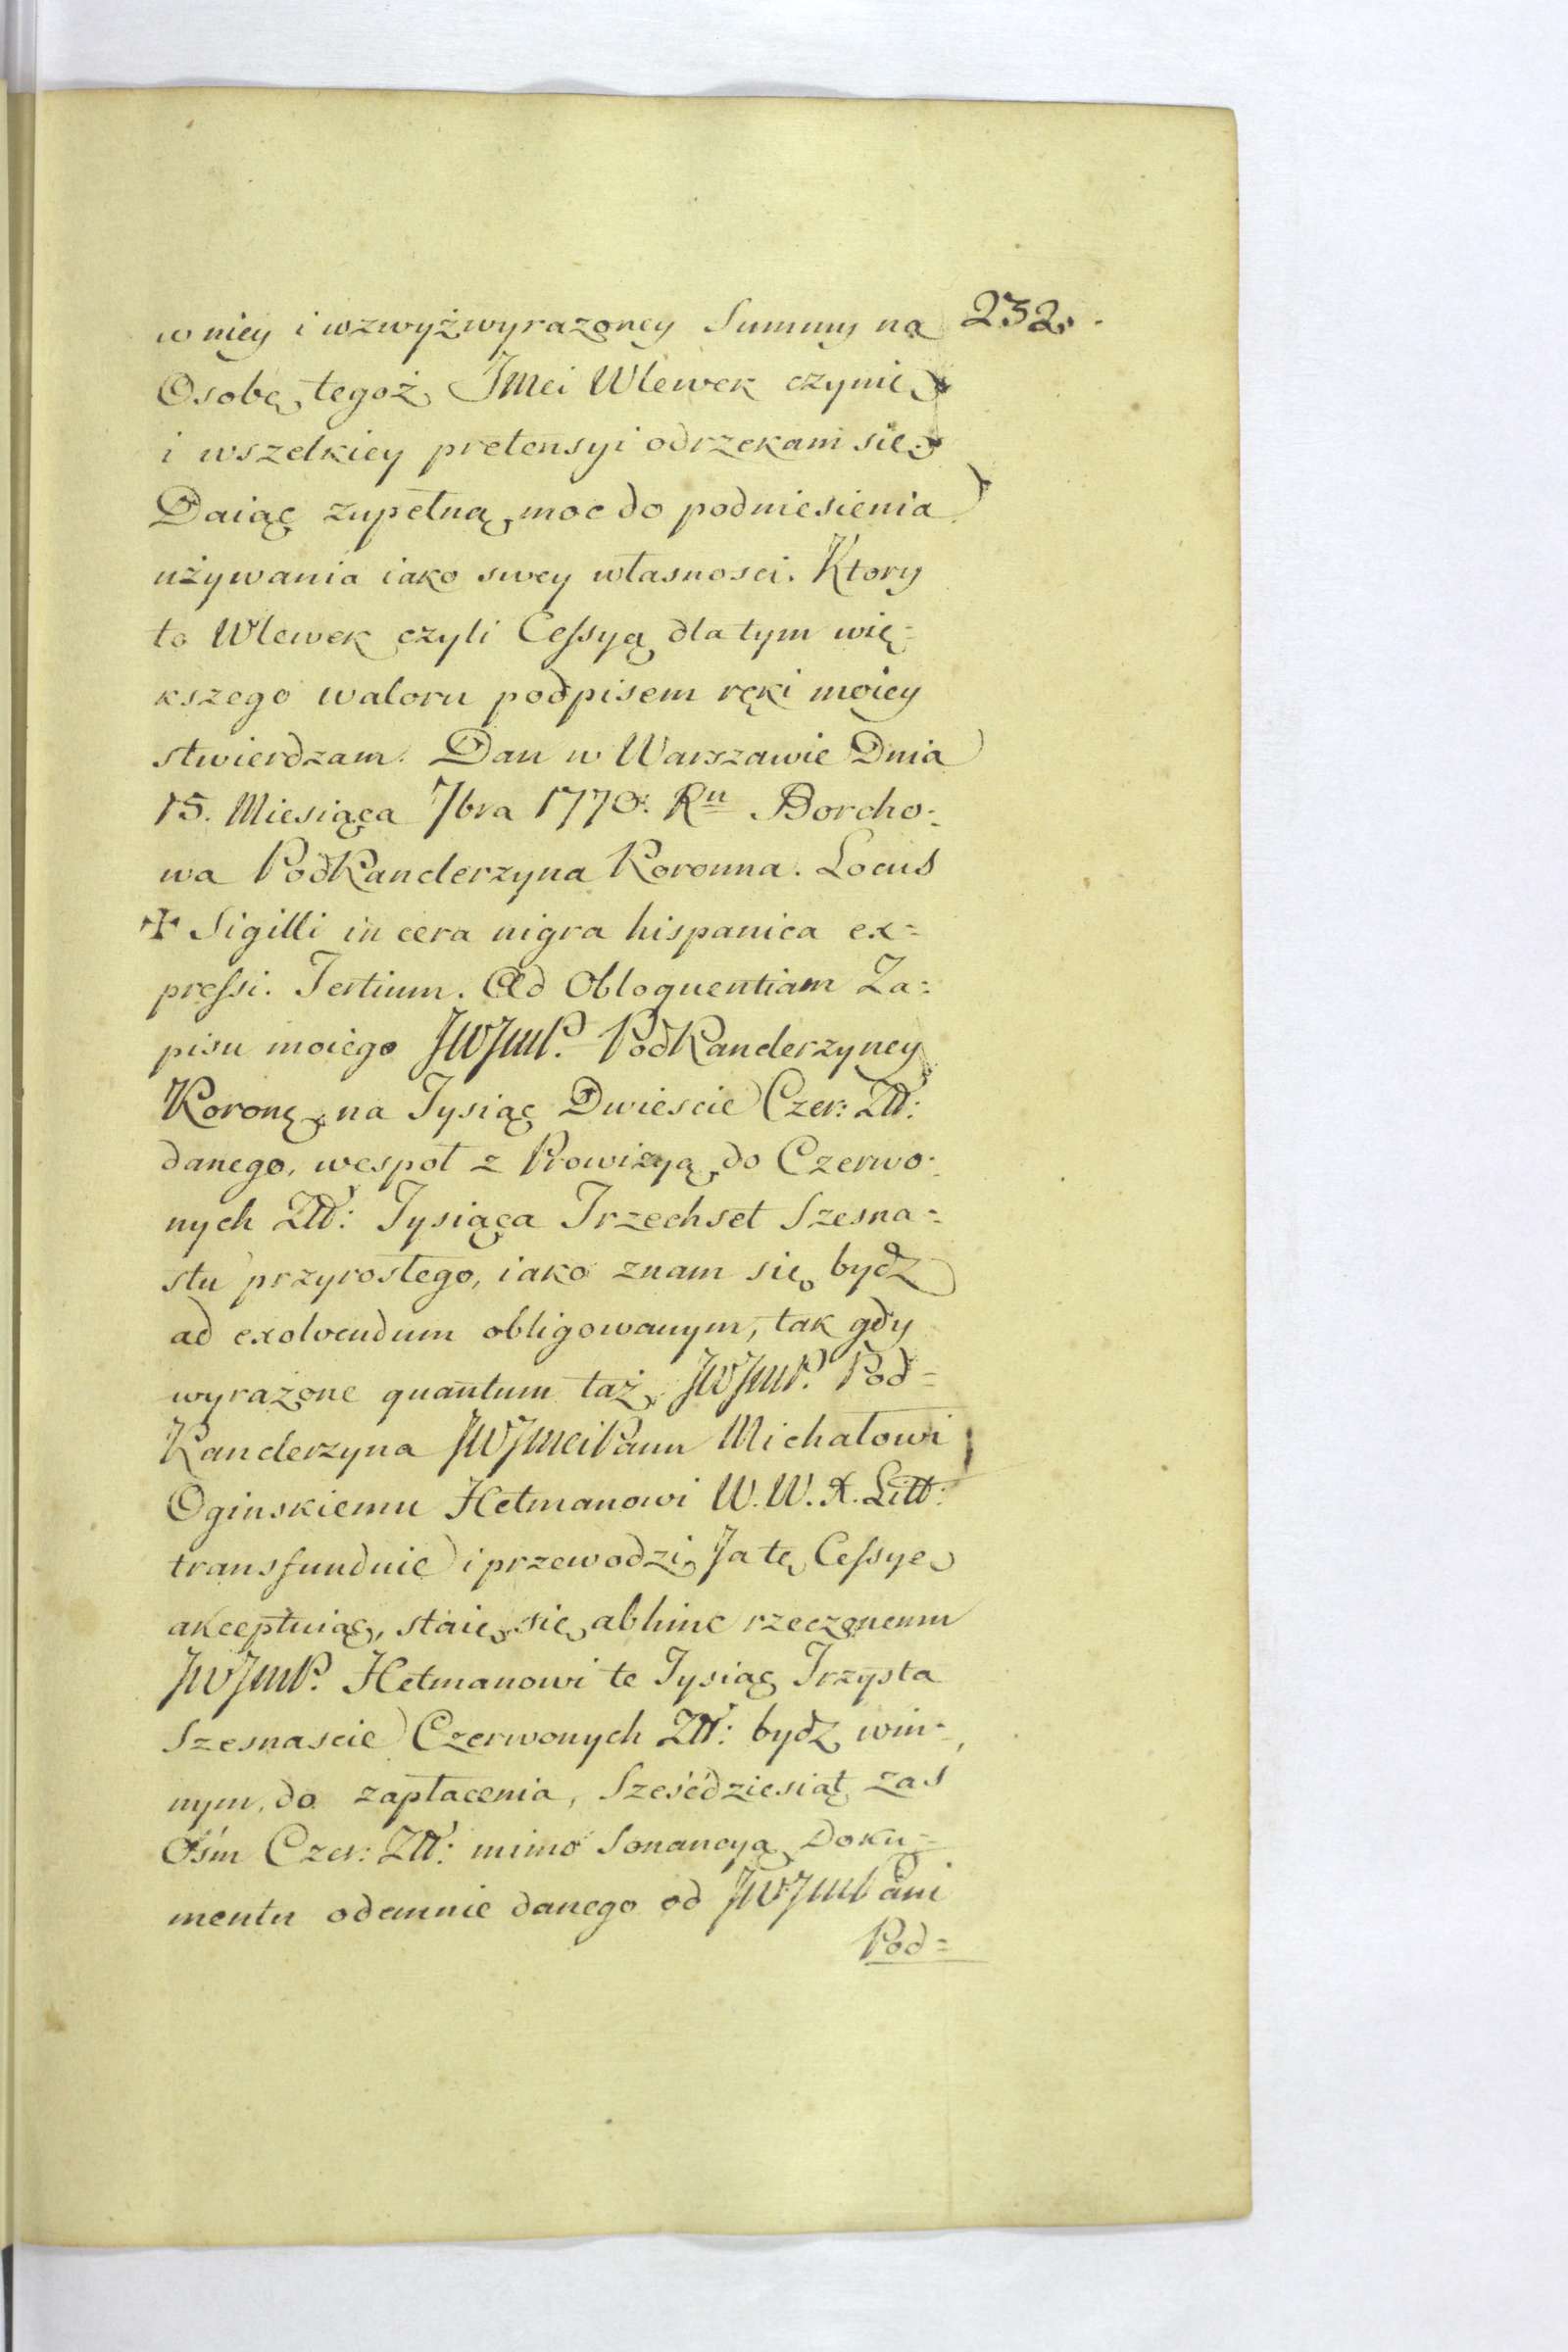 232.
w niey i wzwyż wyrażoney Summy na
Osobę tegoż JMci Wlewek czynię
i wszelkiey pretensyi odrzekam się
Daiąc zupełną moc do podniesienia
używania iako swey własnosci. Ktory
to Wlewek czyli Cessyą dla tym wię=
kszego waloru podpisem ręki moiey
stwierdzam. Dan w Warszawie Dnia
15. Miesiąca 7bra 1770. Ru Borcho=
wa PodKanclerzyna Koronna. Locus
✠ Sigilli in cera nigra hispanica ex=
pressi. Tertium. Ad Obloquentiam Za=
pisu moiego JWJmP. PodKanclerzyney
Koronę na Tysiąc Dwiescie Czer: Złł:
danego, wespoł z Prowizyą do Czerwo=
nych Złł: Tysiąca Trzechset Szesna=
stu przyrosłego, iako znam się bydź
ad exolvendum obligowanym, tak gdy
wyrażone quantum taż JWJmP. Pod=
Kanclerzyna JWJmciPanu Michałowi
Oginskiemu Hetmanowi W. W. X. Litt:
transfunduie i przewodzi, Ja tę Cessye
akceptuiąc, staię się abhinc rzeczonemu
JWJmP. Hetmanowi te Tysiąc Trzysta
Szesnascie Czerwonych Złł: bydź win=
nym, do zapłacenia, Sześćdziesiąt zas
Ośm Czer: Złł: mimo Sonancyą Doku=
mentu odemnie danego od JWJmPani
Pod=